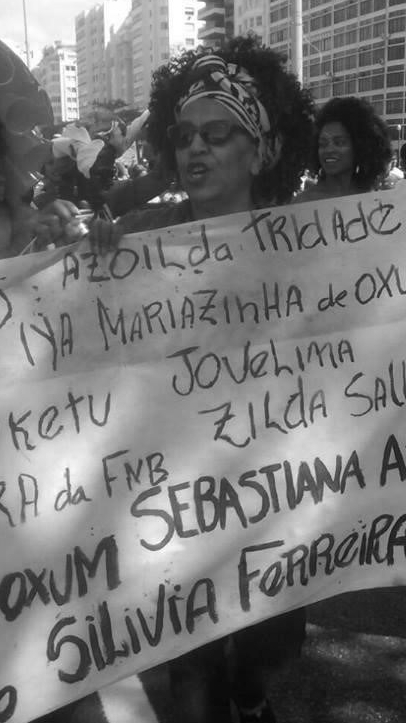 AZOILda TRIdAdE
IYA MARIAZINHA de OXU
KETU JOVELIMA
ZILDA SALL
RA da FNB
SEBASTIANA A
OXUM
SILIVIA FERREIRA